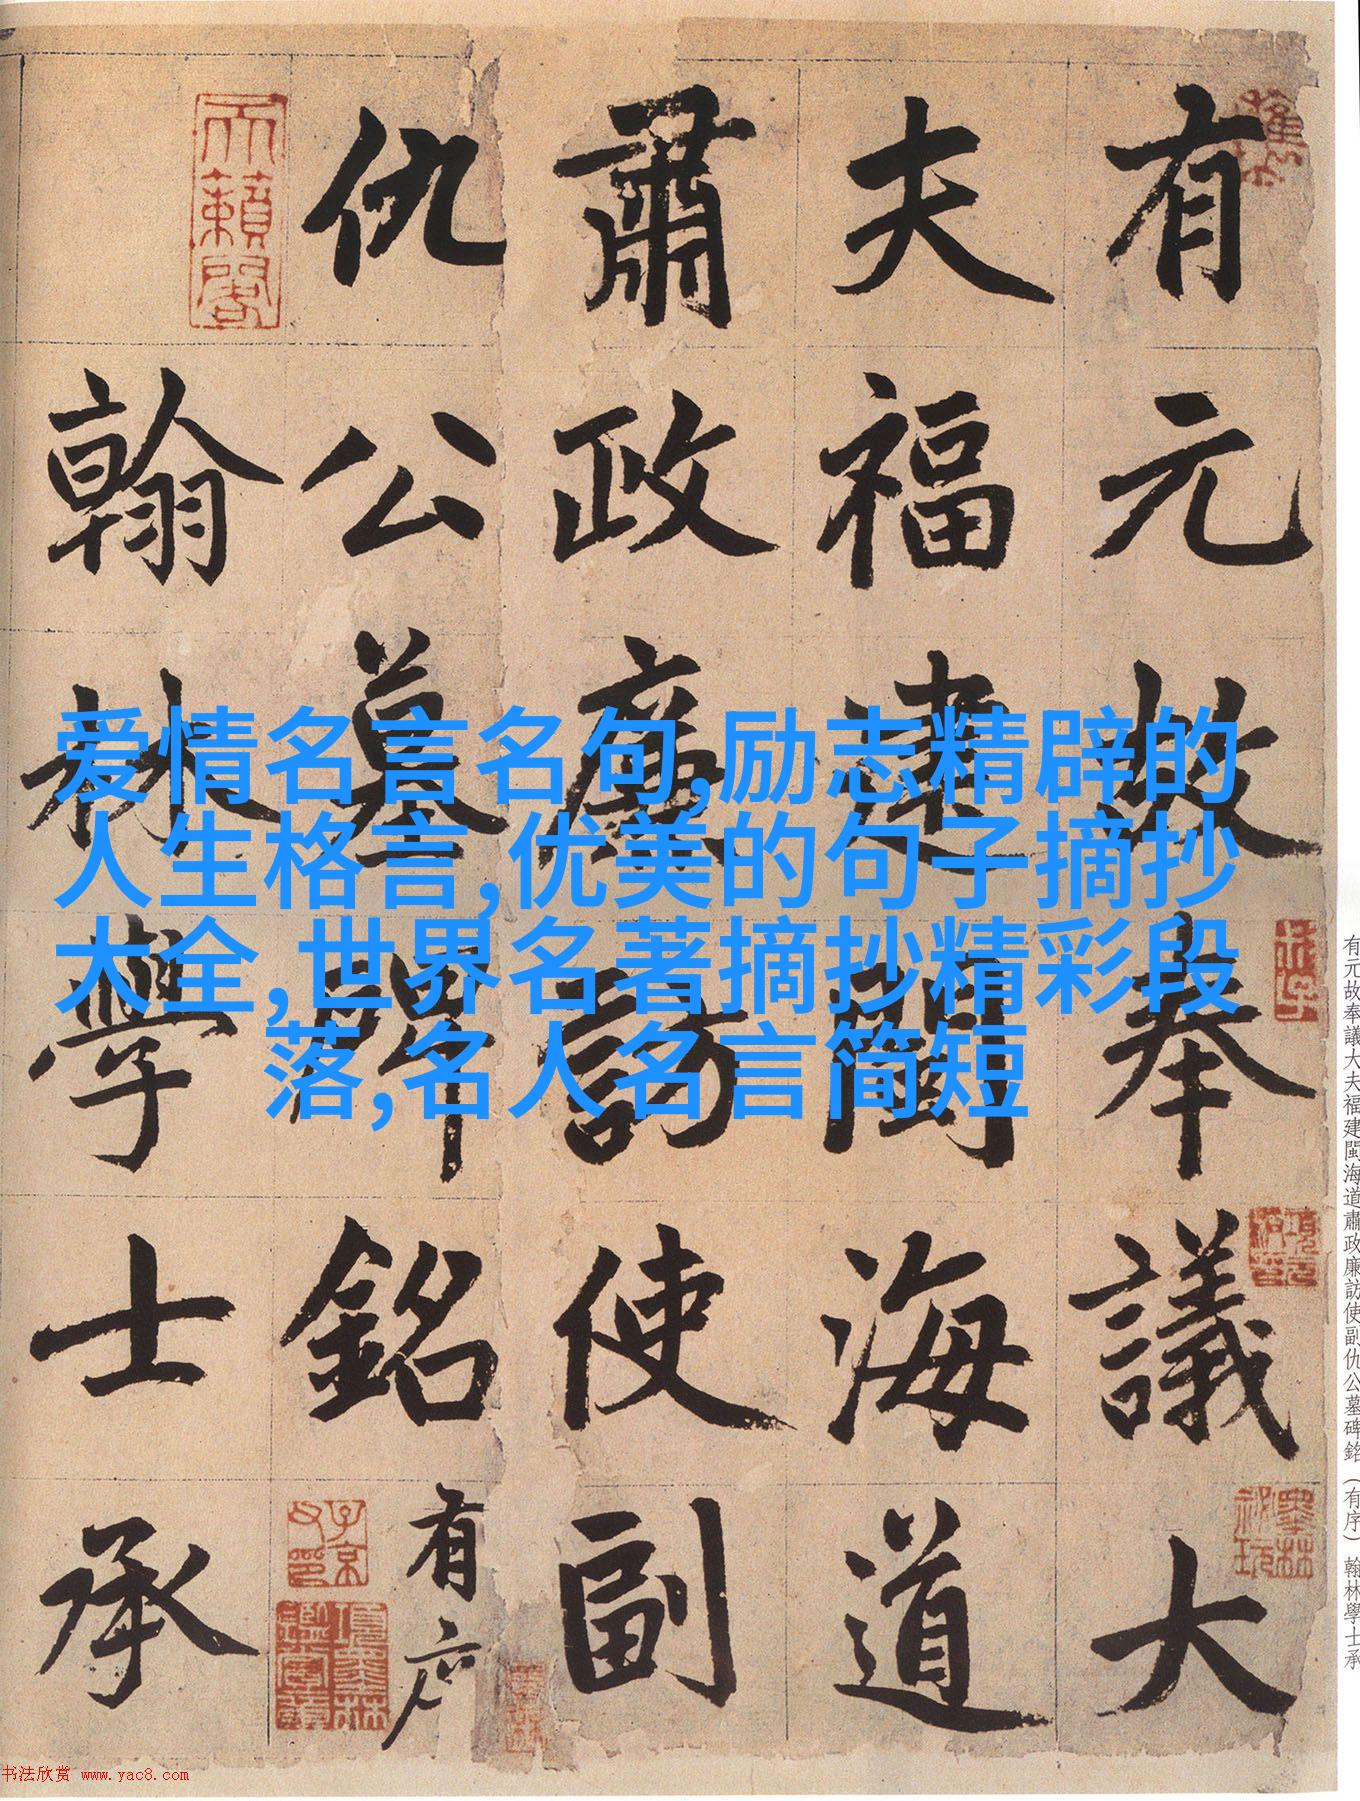 有元故奉議大
夫福建閩海道
肅政廉訪使副
仇公墓碑銘有序
翰林學士承
天籟閣
子京父印
爱情名言名句,励志精辟的
人生格言,优美的句子摘抄
大全,世界名著摘抄精彩段
落,名人名言简短
有元故奉議大夫福建閩海道肅政廉訪使副仇公墓碑銘（有序）翰林學士承
书法欣赏 www.yac8.com